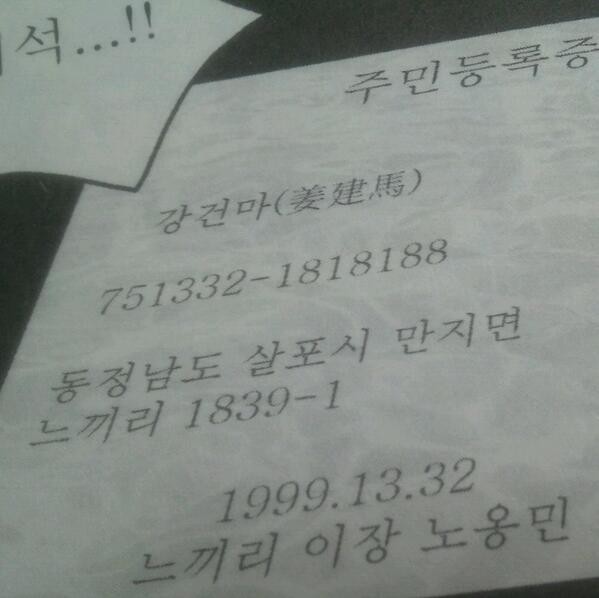 석...!!
주민등록증
강건마(姜建馬)
751332-1818188
동정남도 살포시 만지면
느끼리 1839-1
1999.13.32
느끼리 이장 노옹민